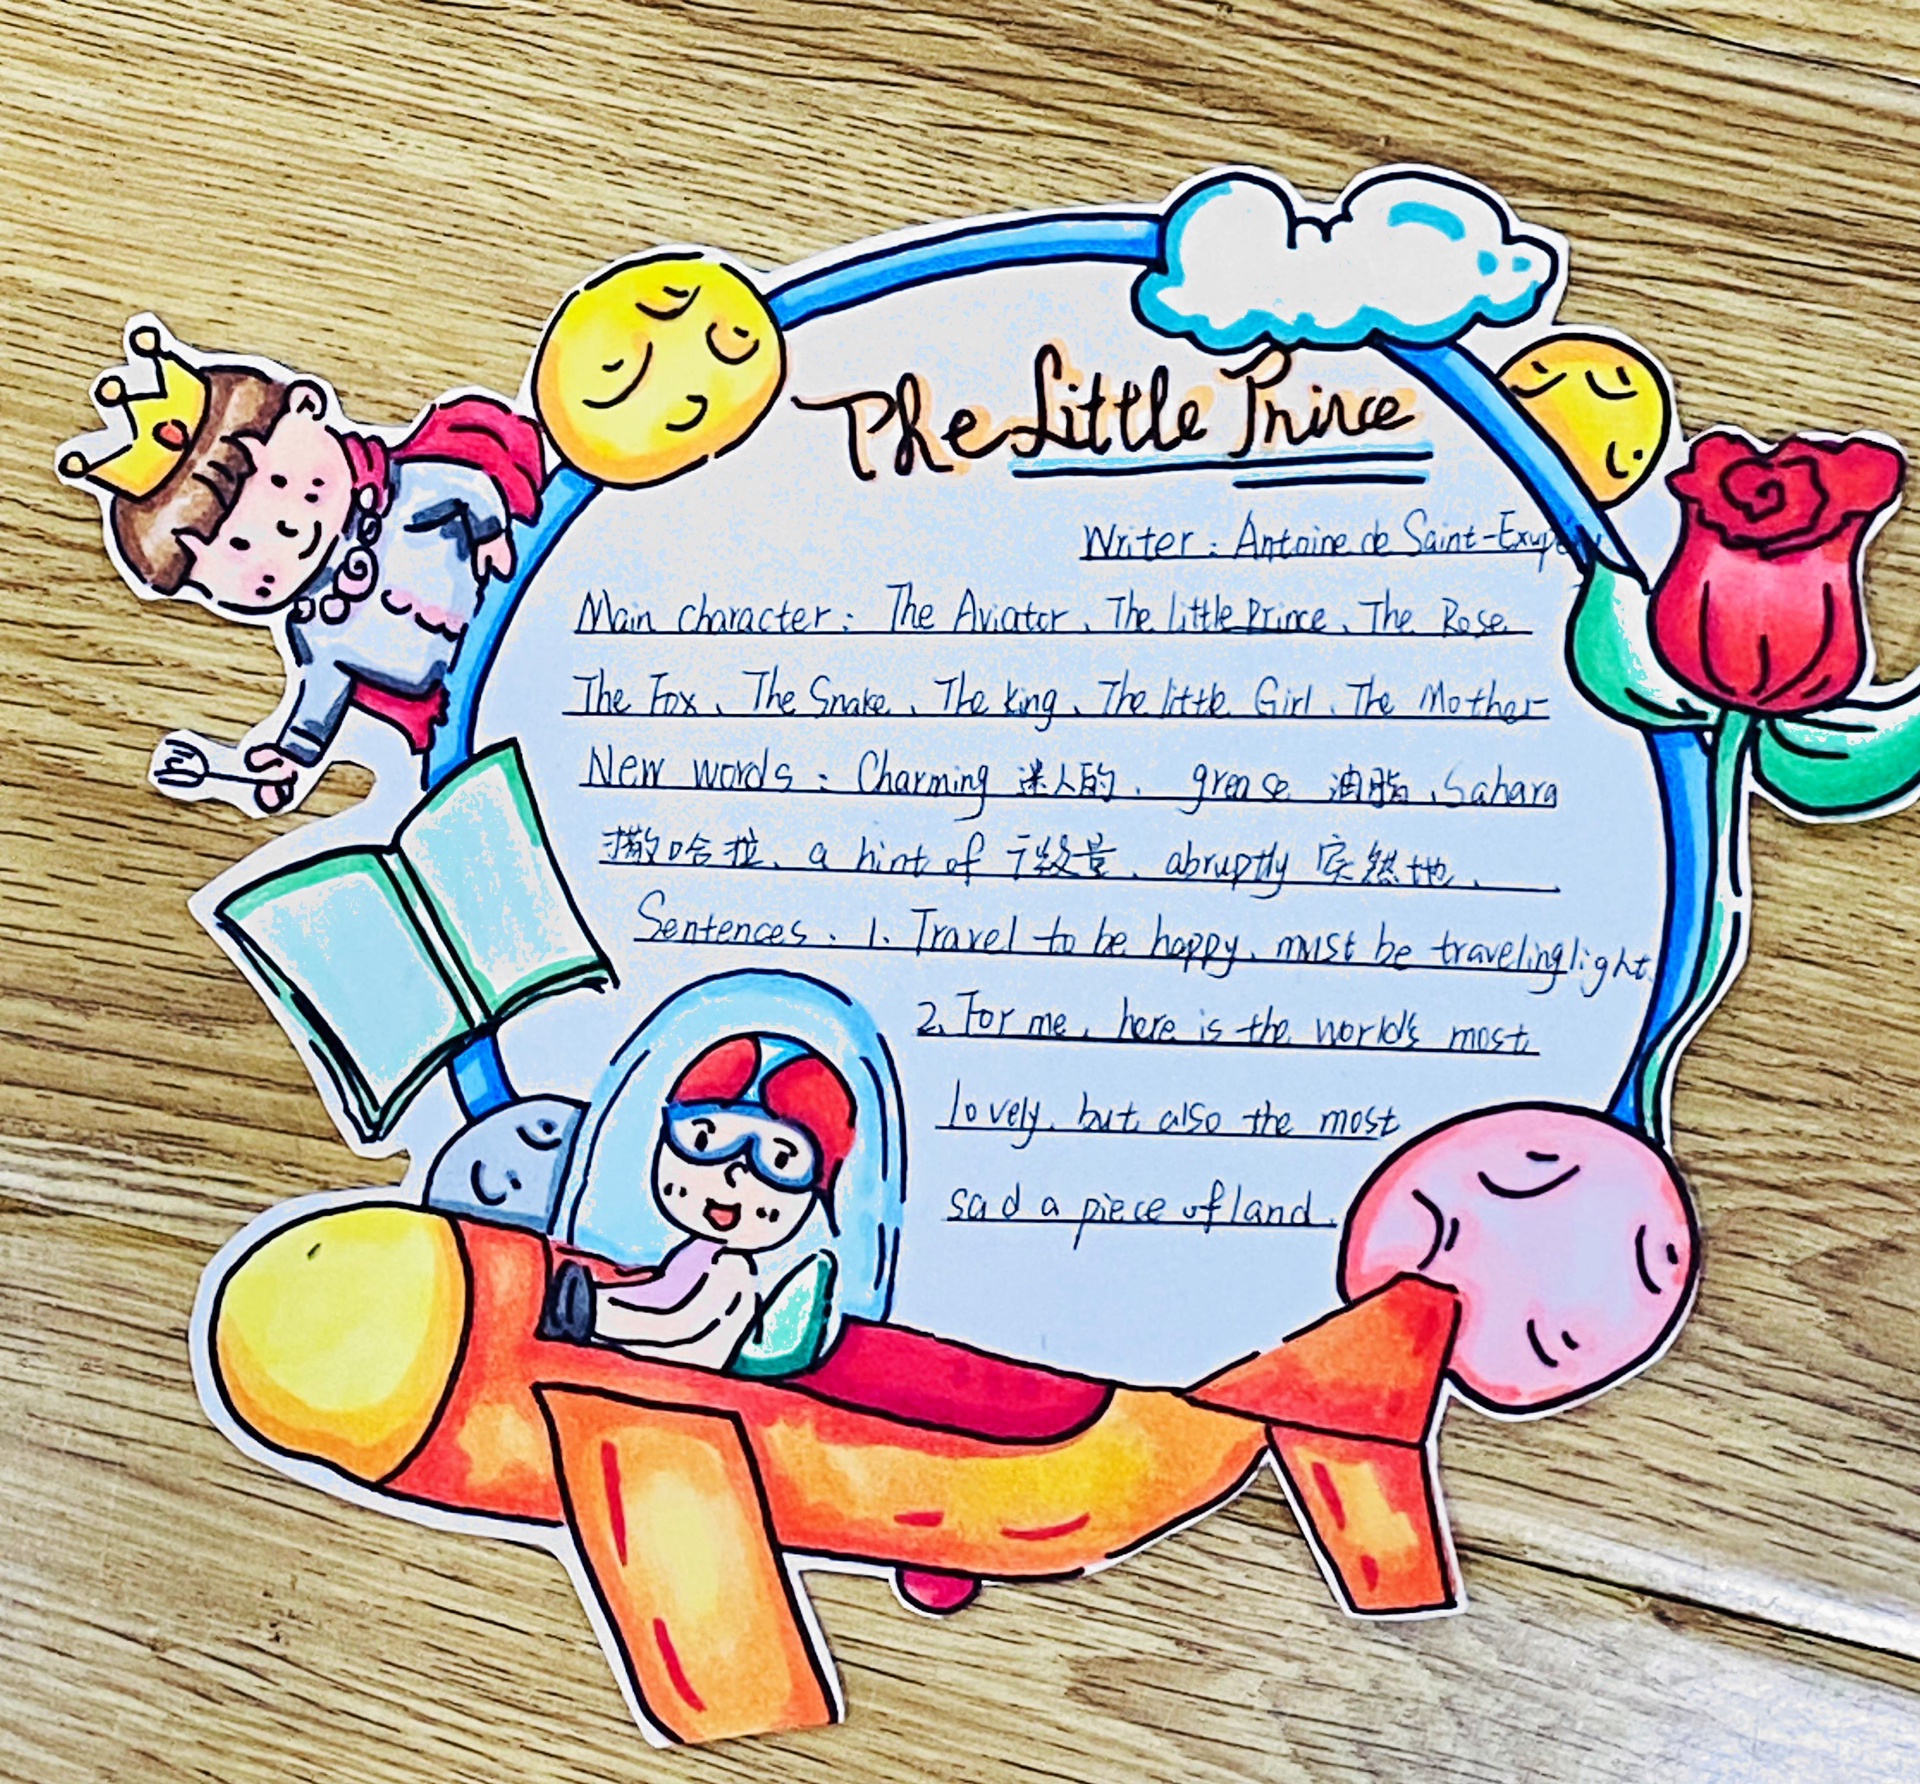 The Little Prince
Writer : Antoine de Saint-Exupery
Main character : The Aviator、The little Prince、The Rose
The Fox、The Snake、The king、The little Girl、The Mother
New words : Charming 迷人的、grease 油脂、Sahara
撒哈拉、a hint of 少数量、abruptly 突然地、
Sentences. 1. Travel to be happy, must be traveling light.
2. For me, here is the world's most
lovely, but also the most
sad a piece of land.